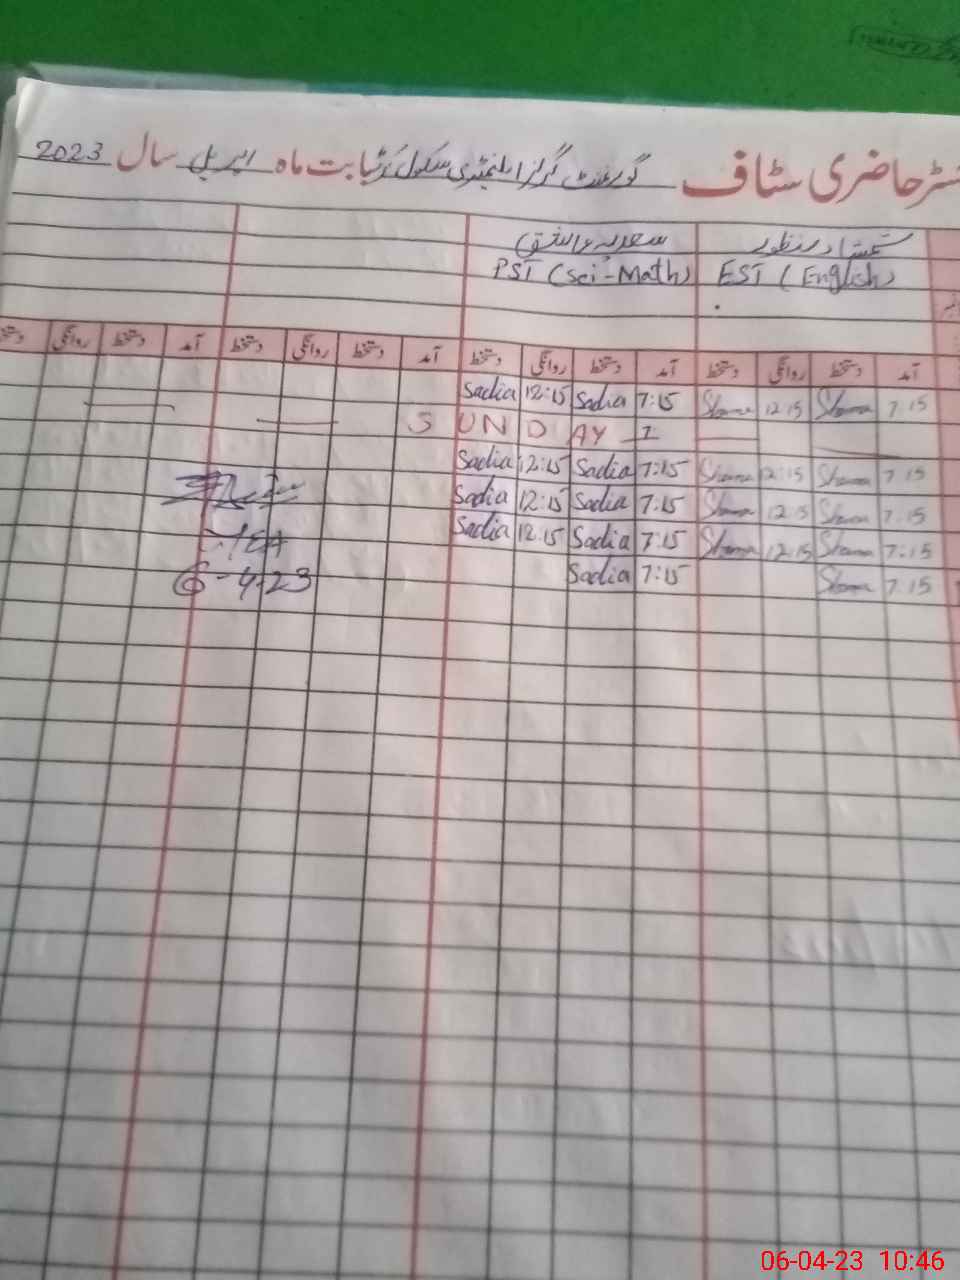 سٹر حاضری سٹاف گورنمنٹ گرلز ایلیمنٹری سکول بابت ماہ اپریل سال 2023
شمشاد منظور سعدیہ عاشق
EST (English) PST (Sci-Math)
آمد دستخط روانگی دستخط آمد دستخط روانگی دستخط آمد دستخط روانگی دستخط آمد دستخط روانگی
Sadia 12:15 Sadia 7:15 12:15 7:15
SUNDAY
Sadia 12:15 Sadia 7:15 12:15 7:15
Sadia 12:15 Sadia 7:15 12:15 7:15
Sadia 12:15 Sadia 7:15 12:15 7:15
Sadia 7:15 7:15
6-4-23
06-04-23 10:46